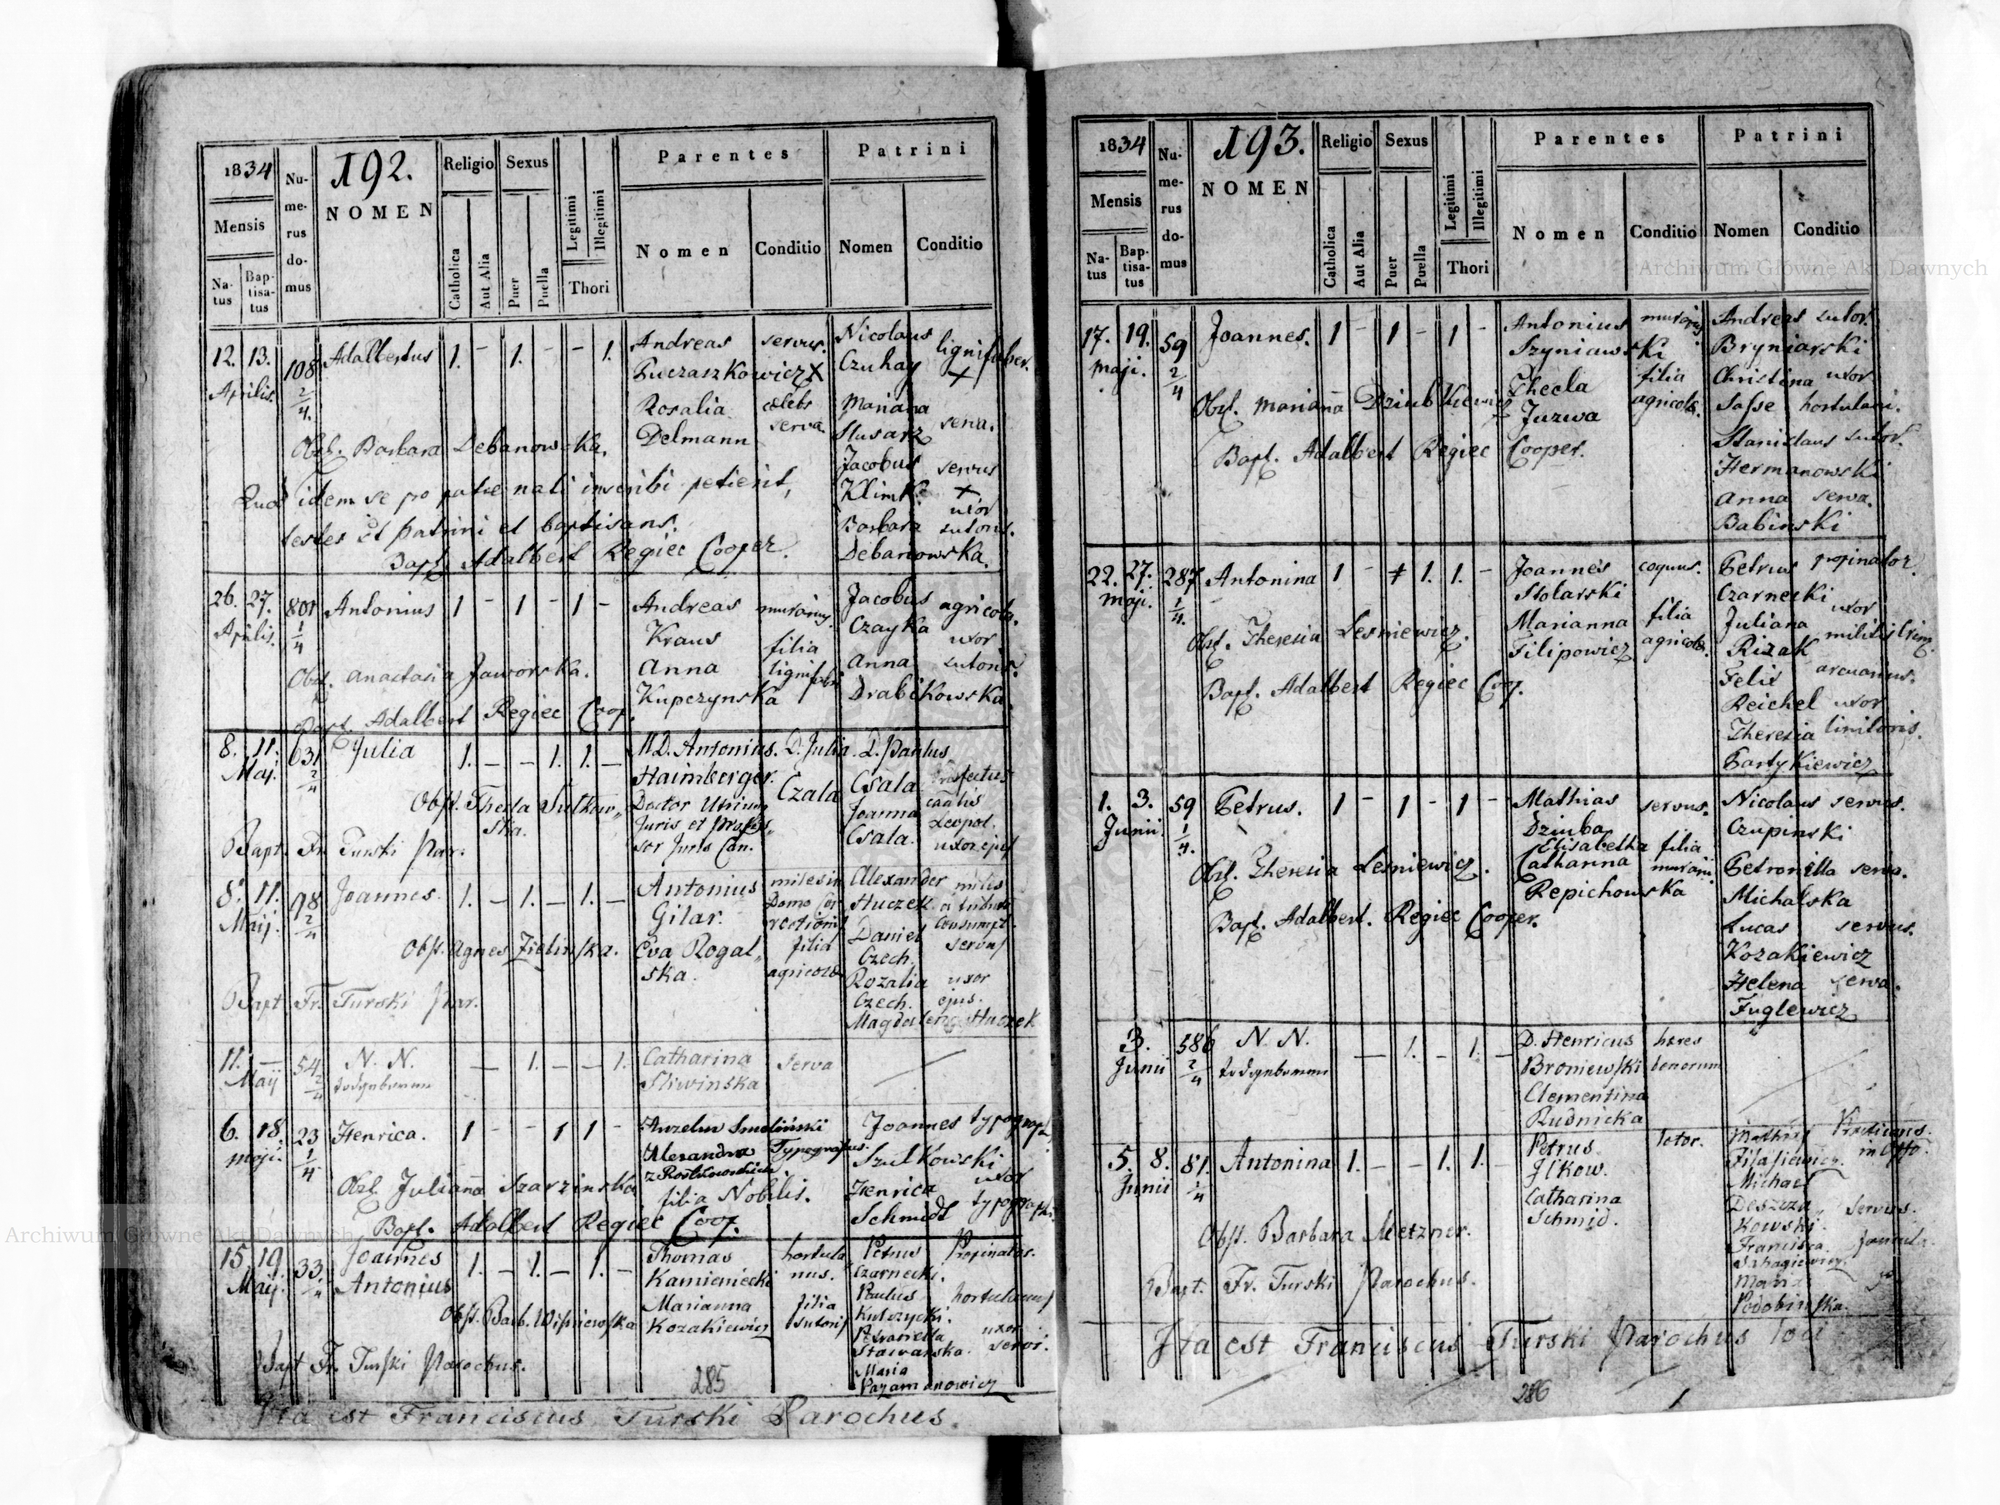 1834
Mensis
Na-
tus
Bap-
tisa-
tus
Nu-
me-
rus
do-
mus
192.
NOMEN
Religio
Catholica
Aut Alia
Sexus
Puer
Puella
Legitimi
Illegitimi
Thori
Parentes
Nomen
Conditio
Patrini
Nomen
Conditio
12. 13. 108 Adalbertus 1. - 1. - - 1. Andreas servus. Nicolaus lignifaber.
Aprilis 2/4 Czuhay +
Rosalia cælebs Mariana
Delmann serva Slusarz serva.
Obst. Barbara Debanowska.
Jacobus servus
idem se pro patre nati inscribi petierit, Klimk +
testes et patrini et baptisans. Barbara uxor sutoris.
Bapt. Adalbert Regiec Cooper. Debanowska.
26. 27. 801 Antonius 1 - 1 - 1 - Andreas Jacobus agricola.
Aprilis. 1/4 Kraus filia Czayka uxor
Obst. Anastasia Jaworska. Anna lignifabri Anna sutoris.
Kupczynska Drabikowska.
Bapt. Adalbert Regiec Coop.
8. 11. 631 Julia 1. - - 1. 1. - M.D. Antonius. D. Julia D. Paulus
Maj. 2/4 Haimberger. Czala Csala
Obst. Thecla Sutkow,, Doctor Utriusq Joanna
ska. Juris et Profes,, Csala. Leopol.
Bapt. Fr. Turski Par. sor Juris Can. uxor ejus
8. 11. 98 Joannes. 1. - 1. - 1. - Antonius Alexander milis
Maij. 2/4 Gilar. Huczek
Obst. Agnes Zielinska. Eva Rogal,, filia Daniel servus
ska. agricolæ Czech.
Bapt. Fr. Turski Par. Rozalia uxor
Czech. ejus.
Magdalena Huczek
11. - 54 N. N. - 1. - - 1. Catharina serva
Maij 2/4 Sliwinska
6. 18. 23 Henrica. 1 - - 1 1 - Anzelm Smolinski Joannes typograph,
maji. 1/4 Alexandra Typographus. Szulkowski
Obst. Julianna Szarzinska filia Nobilis. Henrica uxor
Bapt. Adalbert Regiec Coop. Schmidt typographi.
15. 19. 33. Joannes 1. - 1. - 1. - Thomas hortula Petrus Propinator.
Maij. Antonius Kamieniecki nus. Czarnecki.
Obst. Barb. Wisniewska Marianna filia Paulus hortulanus
Kozakiewicz sutoris Kulczycki.
Bapt Fr. Turski Parochus. Petronella uxor
Stawarska.
Maria
285 Pazamanowicz
Ita est Franciscus Turski Parochus.
1834
Mensis
Na-
tus
Bap-
tisa-
tus
Nu-
me-
rus
do-
mus
193.
NOMEN
Religio
Catholica
Aut Alia
Sexus
Puer
Puella
Legitimi
Illegitimi
Thori
Parentes
Nomen
Conditio
Patrini
Nomen
Conditio
17. 19. 59 Joannes. 1 - 1 - 1 - Antonius Andreas sutor.
maji. 2/4 Szyniawski Bryniarski
Thecla filia Christina uxor
Obst. Marianna Dziubkiewicz Juzwa agricolæ. Sasse hortulani.
Bapt. Adalbert Regiec Cooper. Stanislaus sutor.
Hermanowski
Anna serva.
Babinski
22. 27. 287 Antonina 1 - 1. 1. - Joannes coquus. Petrus propinator.
maji. 1/4 Stolarski Czarnecki
Obst. Theresia Lesniewicz. Marianna filia Juliana uxor
Filipowicz agricolæ. Rizak
Bapt. Adalbert Regiec Coop. Felix
Reichel uxor
Theresia
Bartykiewicz
1. 3. 59 Petrus. 1 - 1 - 1 - Mathias servus. Nicolaus servus.
Junii 1/4 Dziuba Czupinski
Elisabetha filia
Obst. Theresia Lesniewicz. Catharina Petronilla serva.
Repichowska Michalska
Bapt. Adalbert. Regiec Cooper. Lucas servus.
Kozakiewicz
Helena serva.
Fuglewicz
3. 586 N. N. - 1. - 1. - D. Henricus hæres
Junii 2/4 Broniewski bonorum
Clementina
Rudnicka
5. 8. 81. Antonina 1. - - 1. 1. - Petrus lotor.
Junii 1/4 Ilkow. Michael
Catharina
Obst. Barbara Metzner. Schmid. kowski. servus.
Francisca famula.
Bapt. Fr. Turski Parochus. Maria
Podobinska.
Ita est Franciscus Turski Parochus loci
286
Archiwum Główne Akt Dawnych
Archiwum Główne Akt Dawnych